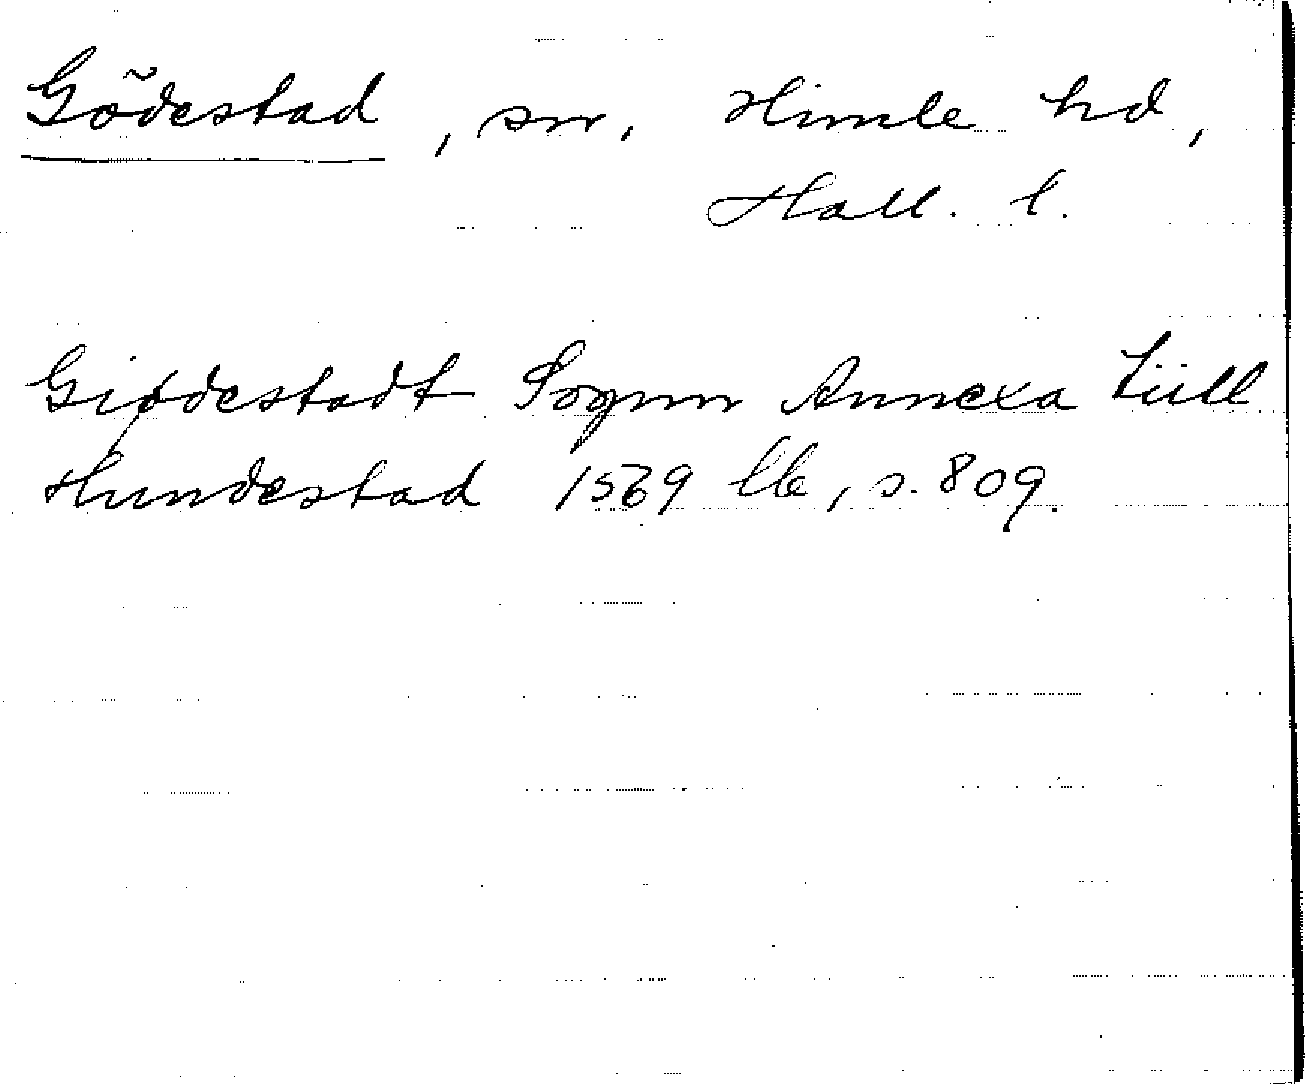 Gödestad, sn, Himle hd,
Hall. l.
Giødestadt Sognn Annexa tüll
Hundestad 1569 llb, s. 809.